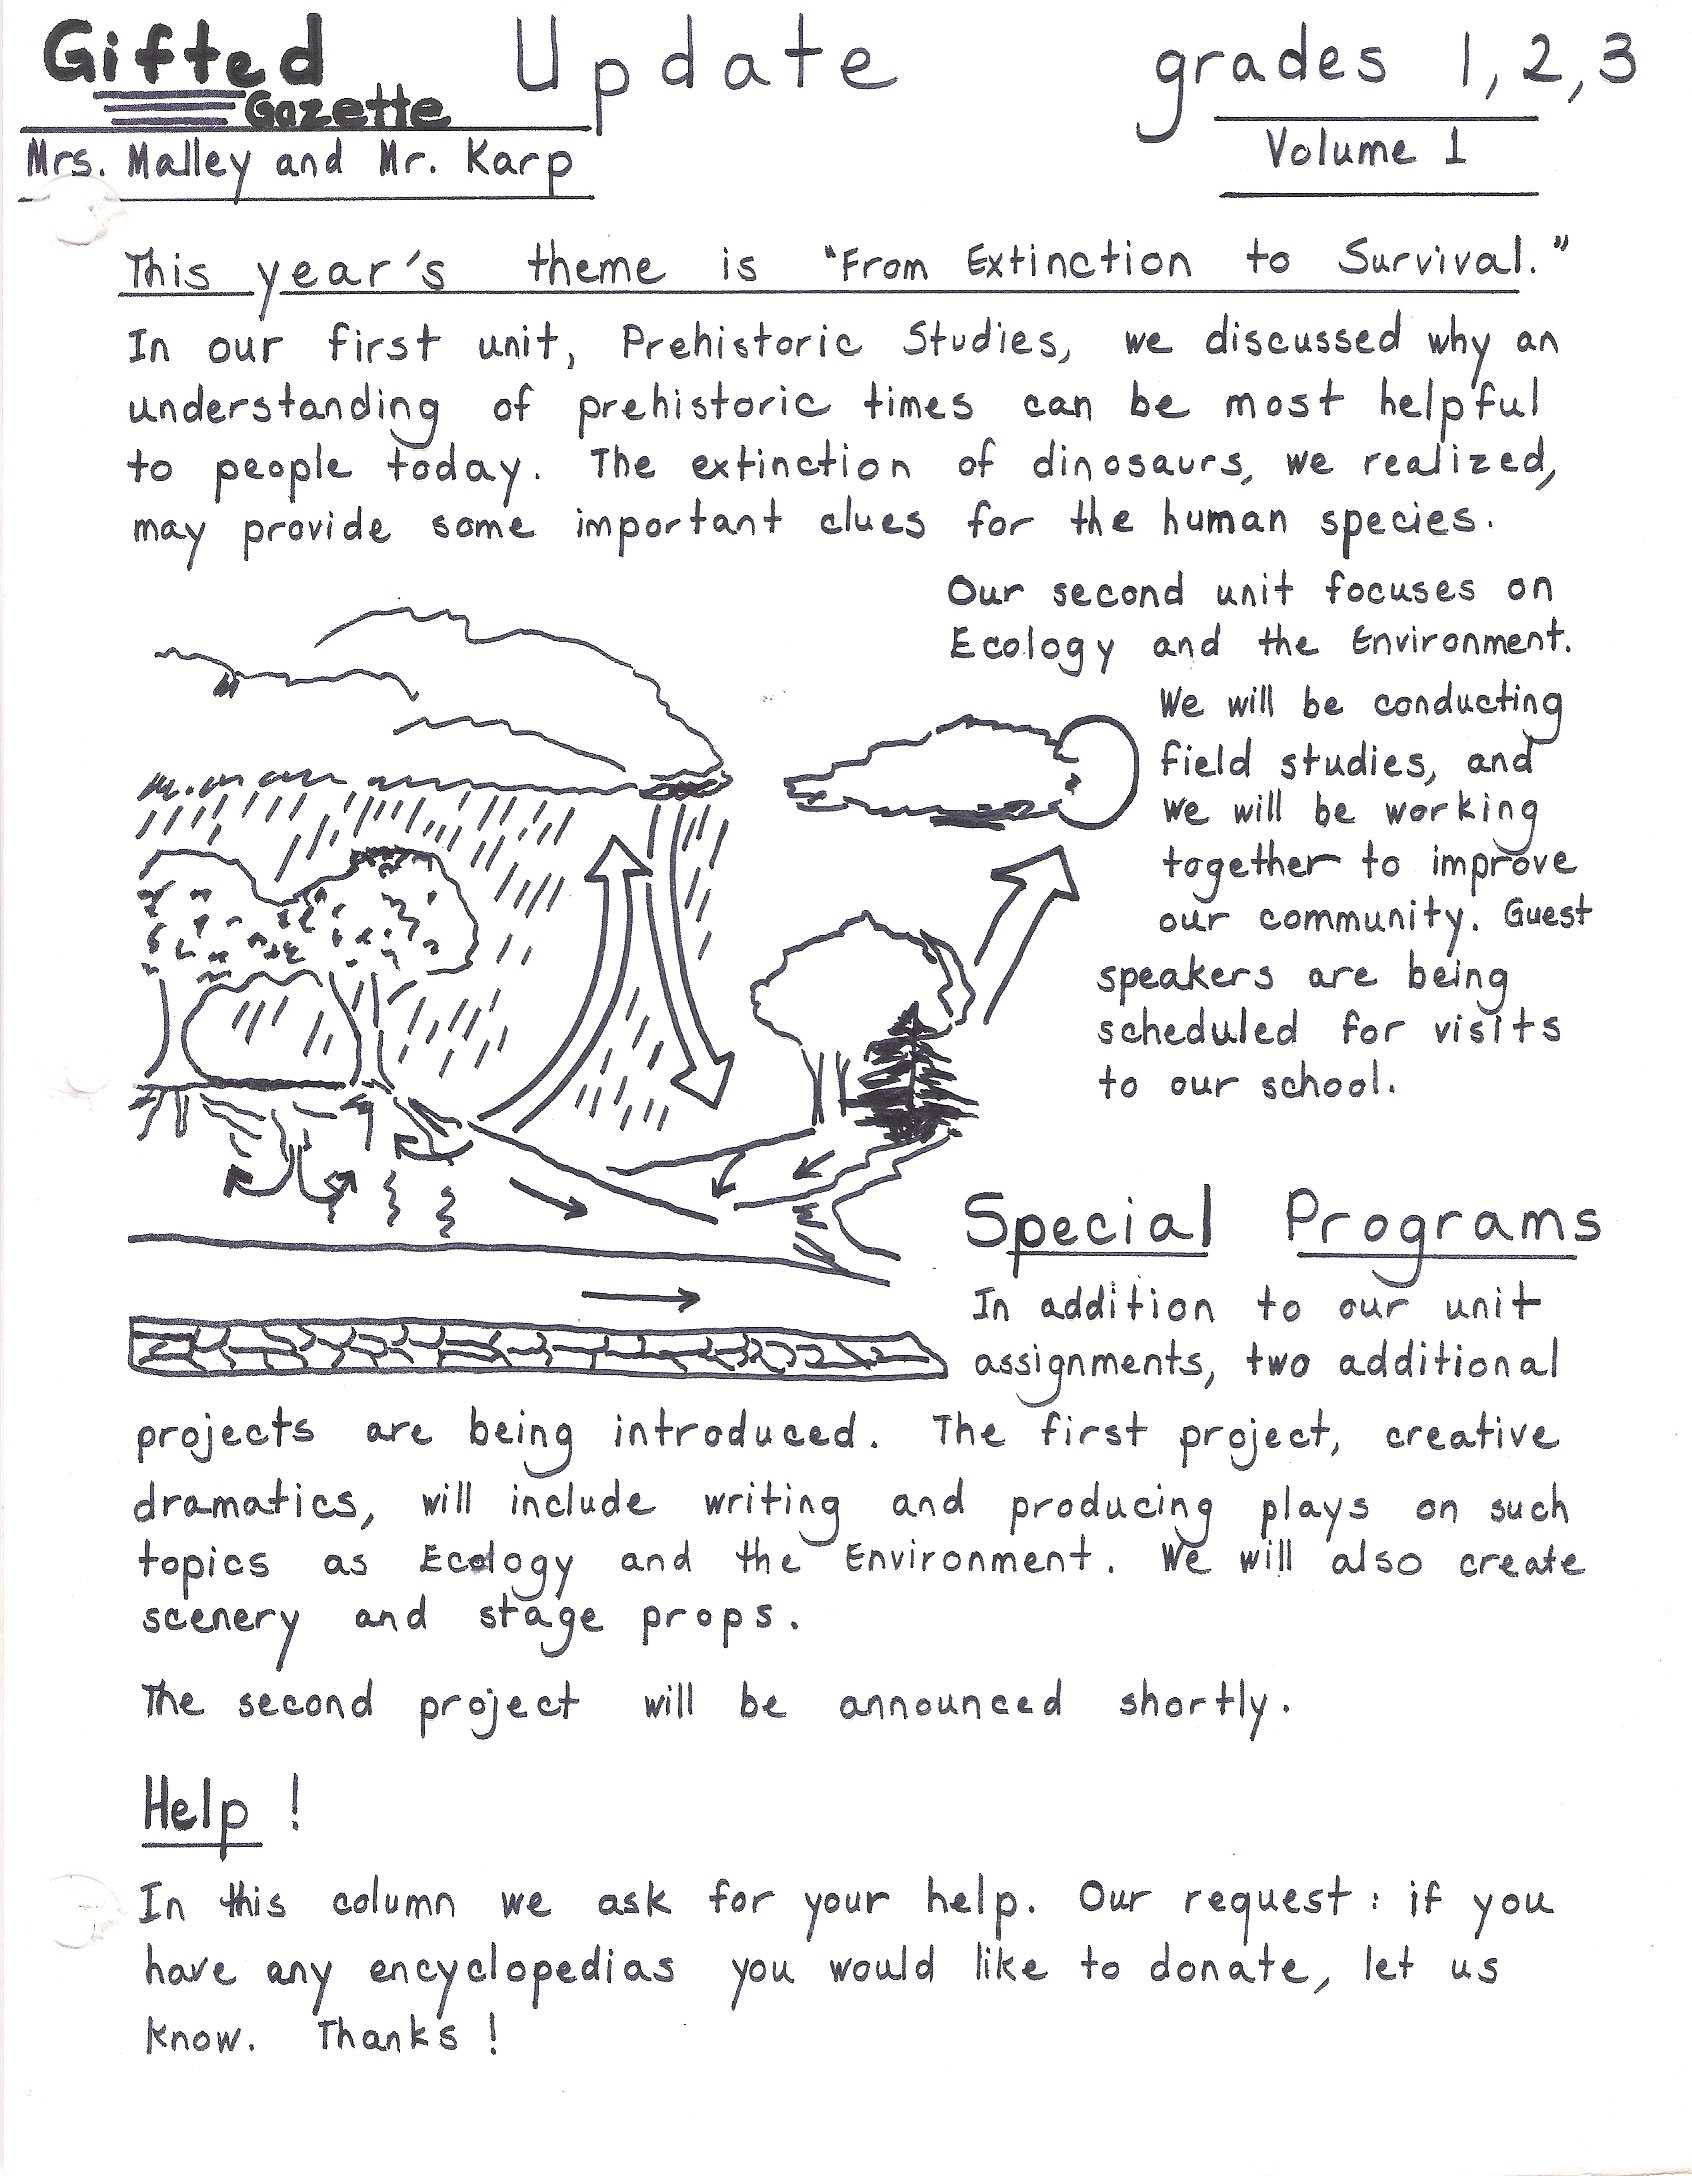 Gifted Gazette Update grades 1, 2, 3
Mrs. Malley and Mr. Karp
Volume 1
This year's theme is "From Extinction to Survival."
In our first unit, Prehistoric Studies, we discussed why an
understanding of prehistoric times can be most helpful
to people today. The extinction of dinosaurs, we realized,
may provide some important clues for the human species.
Our second unit focuses on
Ecology and the Environment.
We will be conducting
field studies, and
we will be working
together to improve
our community. Guest
speakers are being
scheduled for visits
to our school.
Special Programs
In addition to our unit
assignments, two additional
projects are being introduced. The first project, creative
dramatics, will include writing and producing plays on such
topics as Ecology and the Environment. We will also create
scenery and stage props.
The second project will be announced shortly.
Help!
In this column we ask for your help. Our request: if you
have any encyclopedias you would like to donate, let us
know. Thanks!